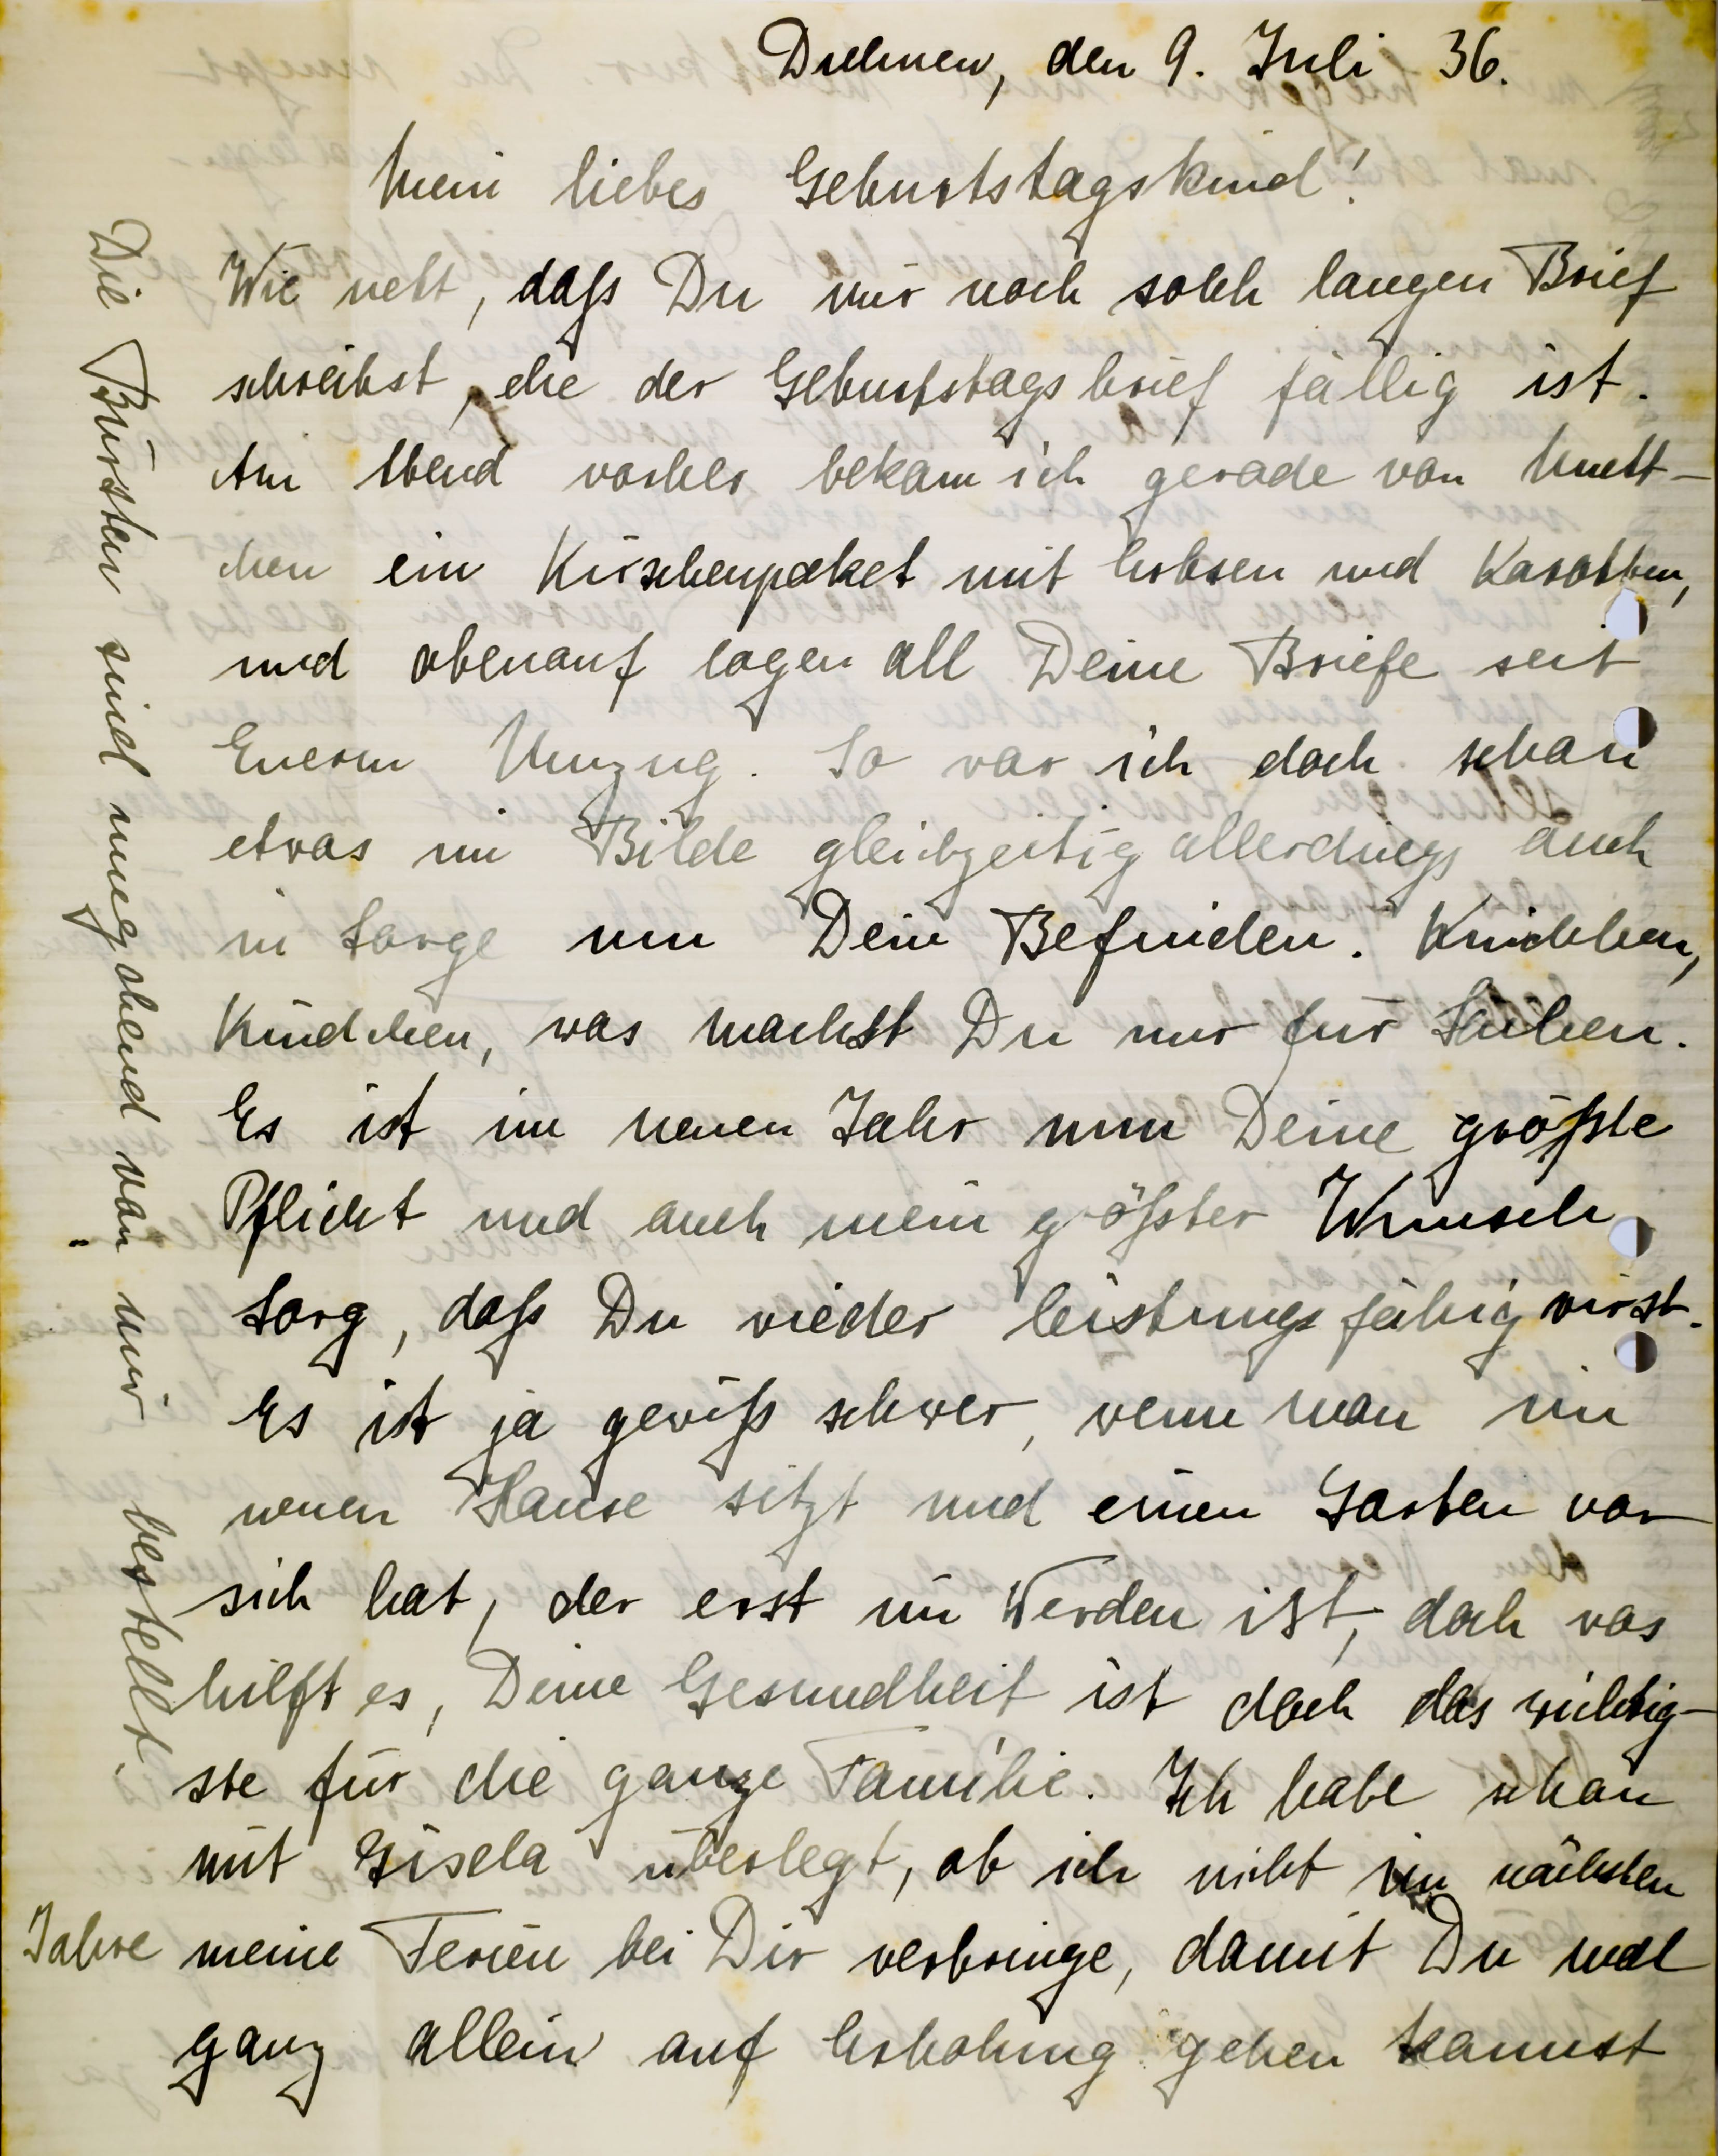 Dülmen, den 9. Juli 36.
Mein liebes Geburtstagskind!
Wie nett, daß Du mir noch solch langen Brief
schreibst, ehe der Geburtstagsbrief fällig ist.
Am Abend vorher bekam ich gerade von Mutt-
chen ein Kirschenpaket mit Erbsen und Karotten,
und obenauf lagen all Deine Briefe seit
Eurem Umzug. So war ich doch schon
etwas im Bilde gleichzeitig allerdings auch
in Sorge um Dein Befinden. Kindchen,
Kindchen, was machst Du nur für Sachen.
Es ist im neuen Jahr nun Deine größte
Pflicht und auch mein größter Wunsch
Sorg, daß Du wieder leistungsfähig wirst.
Es ist ja gewiß schwer, wenn man im
neuen Hause sitzt und einen Garten vor
sich hat, der erst im Werden ist, doch was
hilft es, Deine Gesundheit ist doch das wichtig-
ste für die ganze Familie. Ich habe schon
mit Gisela überlegt, ob ich nicht im nächsten
Jahre meine Ferien bei Dir verbringe, damit Du mal
ganz allein auf Erholung gehen kannst
Die Bürsten sind umgehend von mir bestellt.